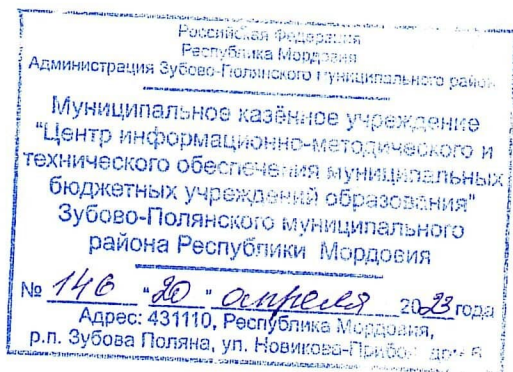 Российская Федерация
Республика Мордовия
Администрация Зубово-Полянского муниципального района
Муниципальное казённое учреждение
"Центр информационно-методического и
технического обеспечения муниципальных
бюджетных учреждений образования"
Зубово-Полянского муниципального
района Республики Мордовия
№ 146 "20" апреля 2023 года
Адрес: 431110, Республика Мордовия,
р.п. Зубова Поляна, ул. Новикова-Прибоя